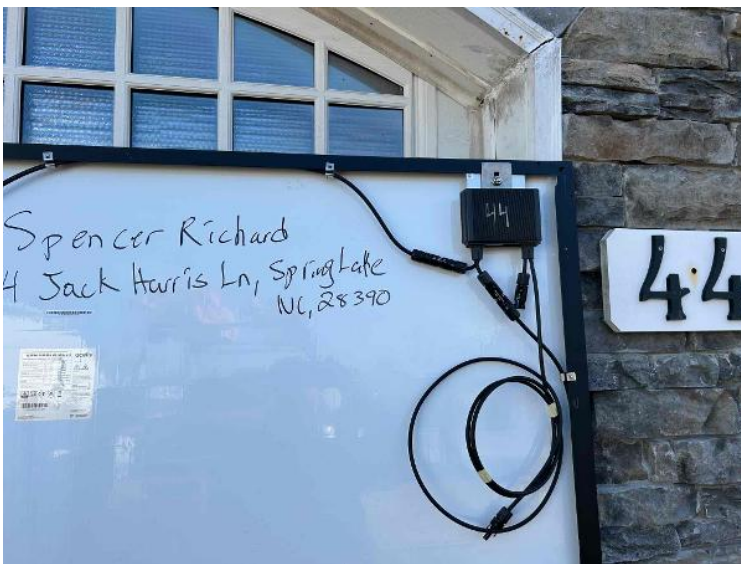 44
Spencer Richard
4 Jack Harris Ln, Spring Lake
NC, 28390
44